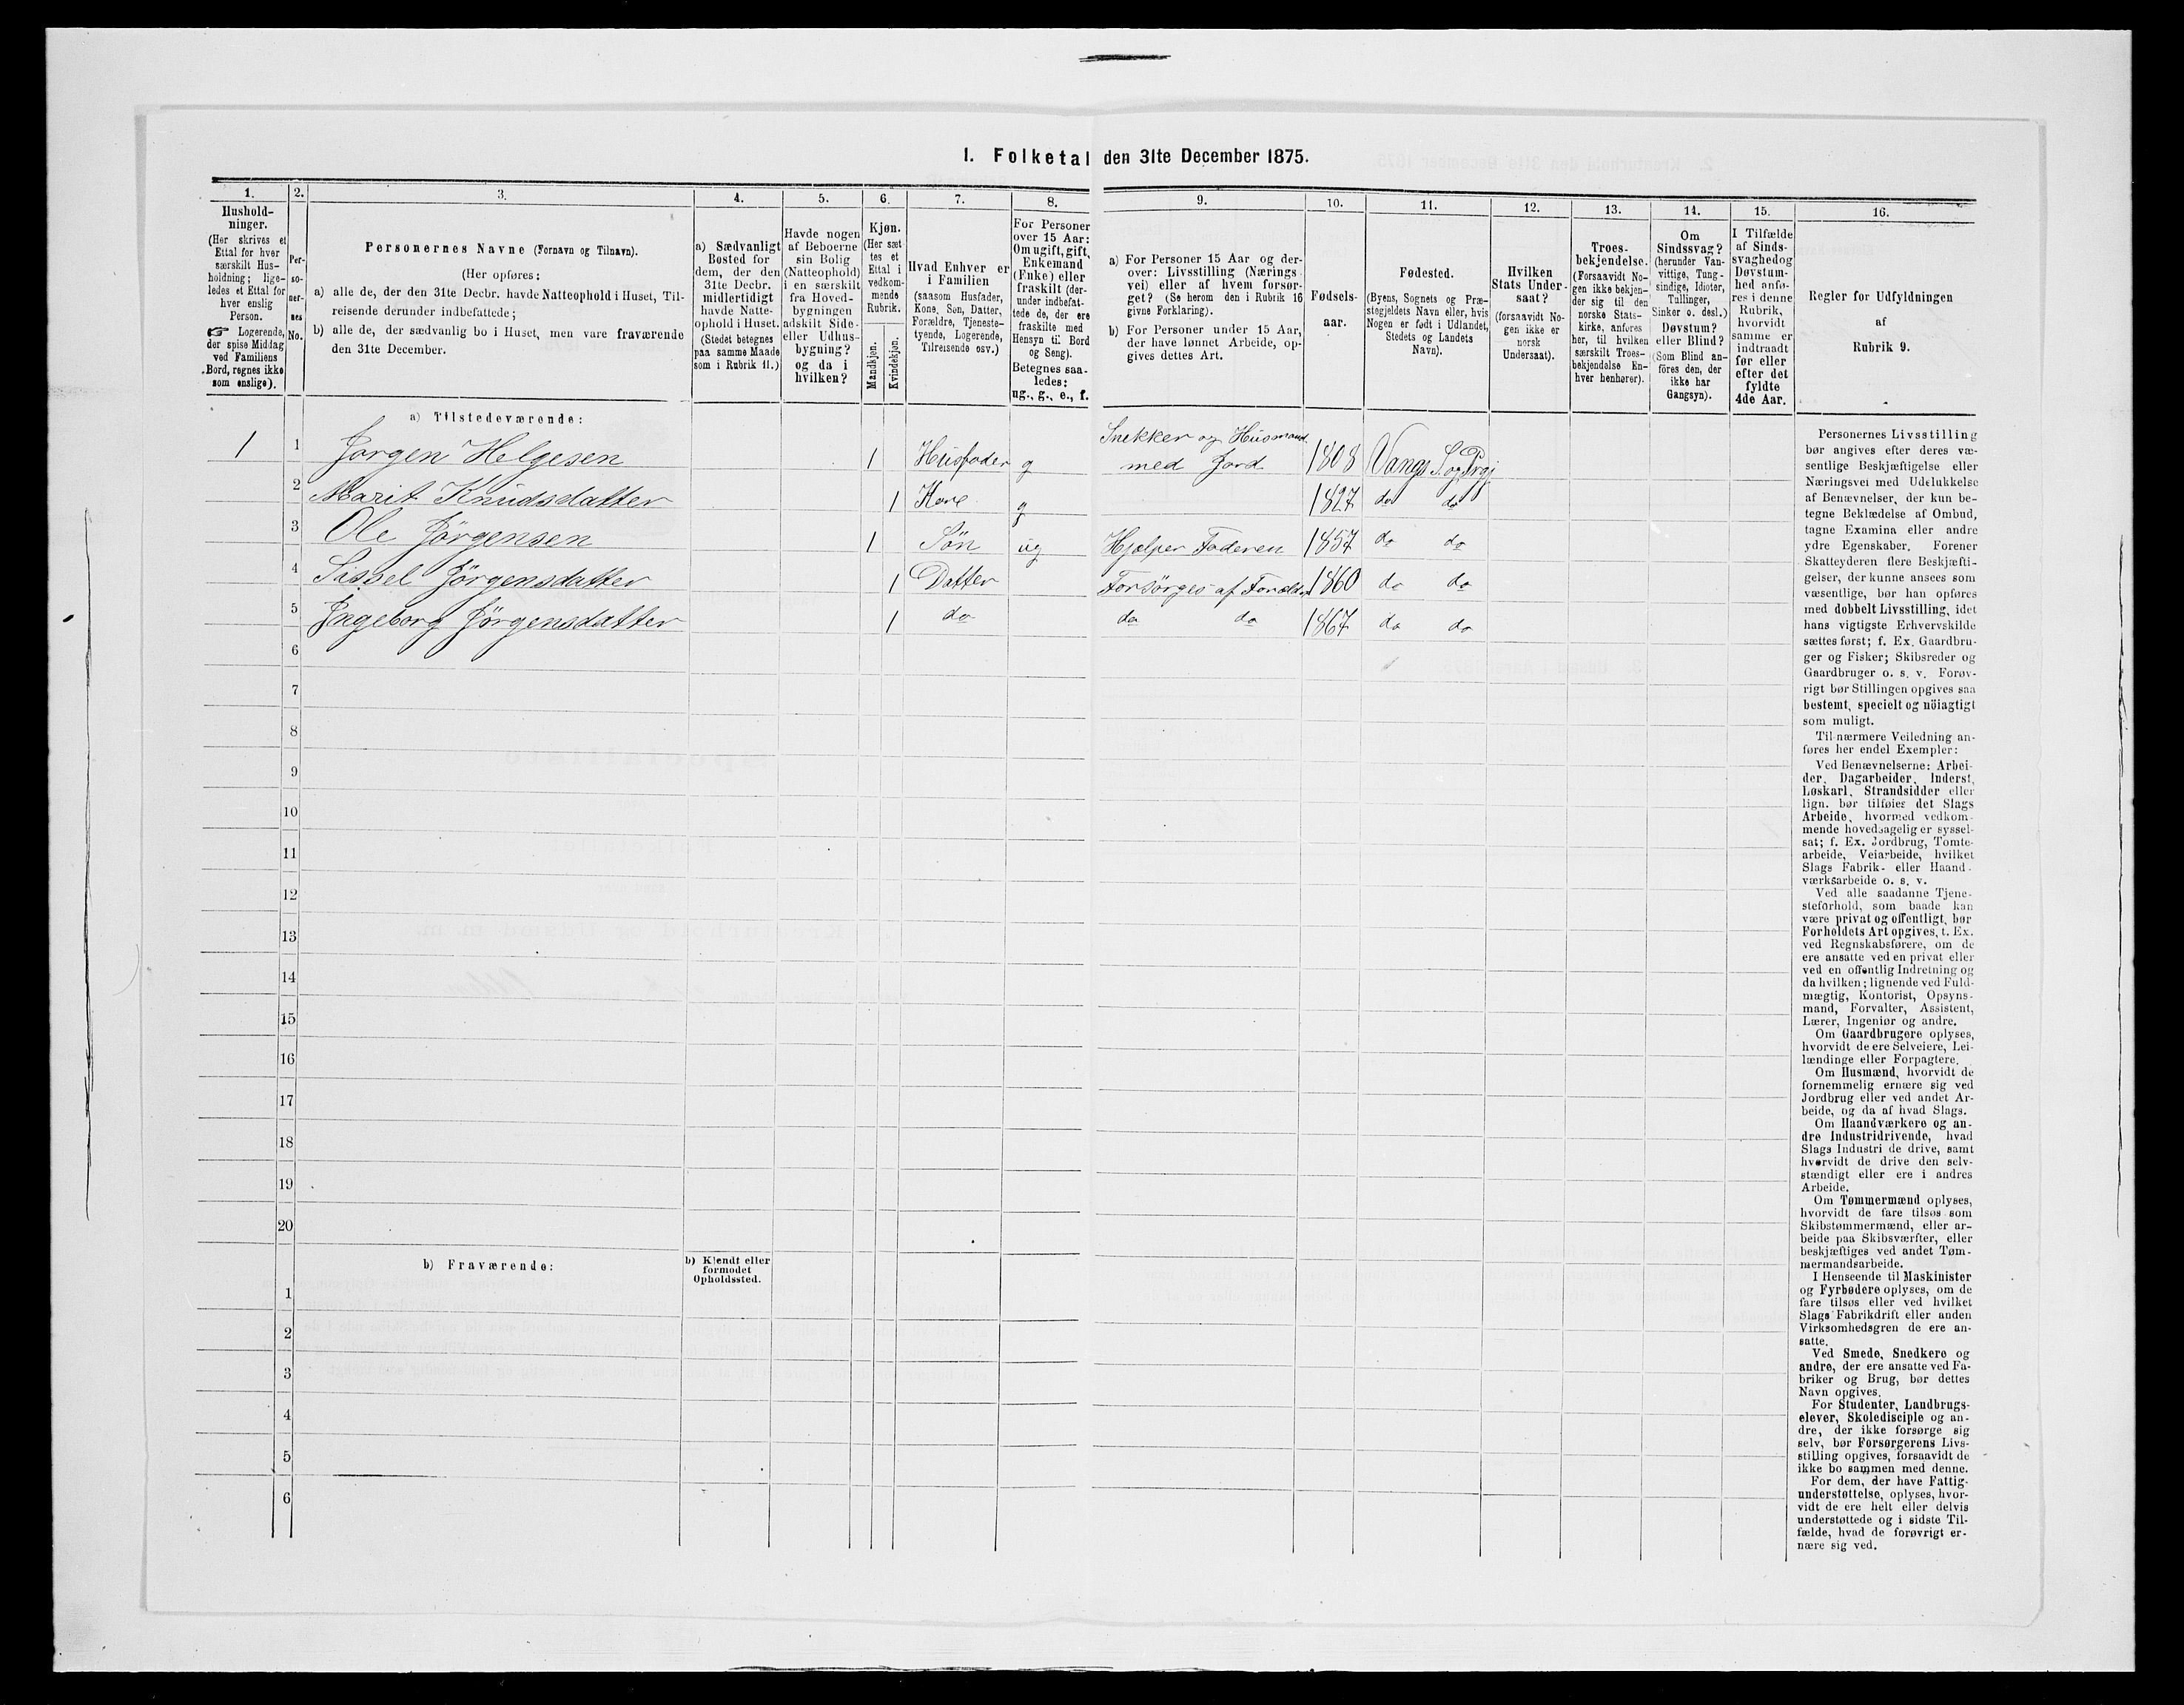 1. Folketal den 31te December 1875.
1.
Hushold-
ninger.
(Her skrives et
Ettal for hver
særskilt Hus-
holdning; lige-
ledes et Ettal for
hver enslig
Person.
☞ Logerende,
der spise Middag
ved Familiens
Bord, regnes ikke
som enslige).
2.
Per-
so-
ner-
nes
No.
3.
Personernes Navne (Fornavn og Tilnavn).
(Her opføres:
a) alle de, der den 31te Decbr. havde Natteophold i Huset, Til-
reisende derunder indbefattede;
b) alle de, der sædvanlig bo i Huset, men vare fraværende
den 31te December.
4.
a) Sædvanligt
Bosted for
dem, der den
31te Decbr.
midlertidigt
havde Natte-
ophold i Huset.
(Stedet betegnes
paa samme Maade
som i Rubrik 11.)
5.
Havde nogen
af Beboerne
sin Bolig
(Natteophold)
i en særskilt
fra Hoved-
bygningen
adskilt Side-
eller Udhus-
bygning?
og da i
hvilken?
6.
Kjøn.
(Her sæt
tes et
Ettal i
vedkom-
mende
Rubrik.
Mandkjøn.
Kvindekjøn.
7.
Hvad Enhver er
i Familien
(saasom Husfader,
Kone, Søn, Datter,
Forældre, Tjeneste-
tyende, Logerende,
Tilreisende osv.)
8.
For Personer
over 15 Aar:
Om ugift, gift,
Enkemand
(Enke) eller
fraskilt (der-
under indbefat-
tede de, der ere
fraskilte med
Hensyn til Bord
og Seng).
Betegnes saa-
ledes:
ug., g., e., f.
9.
a) For Personer 15 Aar og der-
over: Livsstilling (Nærings
vei) eller af hvem forsør-
get? (Se herom den i Rubrik 16
givne Forklaring).
b) For Personer under 15 Aar,
der have lønnet Arbeide, op-
gives dettes Art.
10.
Fødsels-
aar.
11.
Fødested.
(Byens, Sognets og Præ-
stegjeldets Navn eller, hvis
Nogen er født i Udlandet,
Stedets og Landets
Navn).
12.
Hvilken
Stats Under-
saat?
(forsaavidt No-
gen ikke er
norsk
Undersaat).
13.
Troes-
bekjendelse.
(Forsaavidt No-
gen ikke bekjen-
der sig til den
norske Stats-
kirke, anføres
her, til hvilken
særskilt Troes-
bekjendelse En-
hver henhører).
14.
Om
Sindssvag?
(herunder Van-
vittige, Tung-
sindige, Idioter,
Tullinger,
Sinker o. desl.)
Døvstum?
eller Blind?
(Som Blind an-
føres den, der
ikke har
Gangsyn).
15.
I Tilfælde
af Sinds-
svaghed og
Døvstum-
hed anfø-
res i denne
Rubrik,
hvorvidt
samme er
indtraadt
før eller
efter det
fyldte
4de Aar.
16.
Regler for Udfyldningen
af
Rubrik 9.
a) Tilstedeværende:
1 1 Jørgen Helgesen 1 Husfader g Snekker og Husmand
med Jord 1808 Vangs S. og Prgj
2 Marit Knudsdatter 1 Kone g 1827 do do
3 Ole Jörgensen 1 Sön ug Hjælper Faderen 1857 do do
4 Sissel Jörgensdatter 1 Datter Forsörges af Foræld. 1860 do do
5 Ingeborg Jörgensdatter 1 do do do 1867 do do
6
7
8
9
10
11
12
13
14
15
16
17
18
19
20
b) Fraværende:
b) Kjendt eller
formodet
Opholdssted.
1
2
3
4
5
6
Personernes Livsstilling
bør angives efter deres væ-
sentlige Beskjæftigelse eller
Næringsvei med Udelukkelse
af Benævnelser, der kun be-
tegne Beklædelse af Ombud,
tagne Examina eller andre
ydre Egenskaber. Forener
Skatteyderen flere Beskjæfti-
gelser, der kunne ansees som
væsentlige, bør han opføres
med dobbelt Livsstilling, idet
hans vigtigste Erhvervskilde
sættes først; f. Ex. Gaardbru-
ger og Fisker; Skibsreder og
Gaardbruger o. s. v. Forøv-
rigt bør Stillingen opgives saa
bestemt, specielt og nöiagtigt
som muligt.
Til nærmere Veiledning an-
føres her endel Exempler:
Ved Benævnelserne: Arbei-
der, Dagarbeider, Inderst,
Løskarl, Strandsidder eller
lign. bør tilføies det Slags
Arbeide, hvormed vedkom-
mende hovedsagelig er syssel-
sat; f. Ex. Jordbrug, Tomte-
arbeide, Veiarbeide, hvilket
Slags Fabrik- eller Haand-
værksarbeide o. s. v.
Ved alle saadanne Tjene-
steforhold, som baade kan
være privat og offentligt, bør
Forholdets Art opgives, t. Ex.
ved Regnskabsførere, om de
ere ansatte ved en privat eller
ved en offentlig Indretning og
da hvilken; lignende ved Fuld-
mægtig, Kontorist, Opsyns-
mand, Forvalter, Assistent,
Lærer, Ingeniør og andre.
Om Gaardbrugere oplyses,
hvorvidt de ere Selveiere, Lei-
lændinge eller Forpagtere.
Om Husmænd, hvorvidt de
fornemmelig ernære sig ved
Jordbrug eller ved andet Ar-
beide, og da af hvad Slags.
Om Haandværkere og an-
dre Industridrivende, hvad
Slags Industri de drive, samt
hvorvidt de drive den selv-
stændigt eller ere i andres
Arbeide.
Om Tømmermænd oplyses,
hvorvidt de fare tilsøs som
Skibstømmermænd, eller ar-
beide paa Skibsværfter, eller
beskjæftiges ved andet Tøm-
mermandsarbeide.
I Henseende til Maskinister
og Fyrbødere oplyses, om de
fare tilsøs eller ved hvilket
Slags Fabrikdrift eller anden
Virksomhedsgren de ere an-
satte.
Ved Smede, Snedkere og
andre, der ere ansatte ved Fa-
briker og Brug, bør dettes
Navn opgives.
For Studenter, Landbrugs-
elever, Skoledisciple og an-
dre, der ikke forsørge sig
selv, bør Forsørgerens Livs-
stilling opgives, forsaavidt de
ikke bo sammen med denne.
For dem, der have Fattig-
understøttelse, oplyses, hvor-
vidt de ere helt eller delvis
understøttede og i sidste Til-
fælde, hvad de forøvrigt er-
nære sig ved.